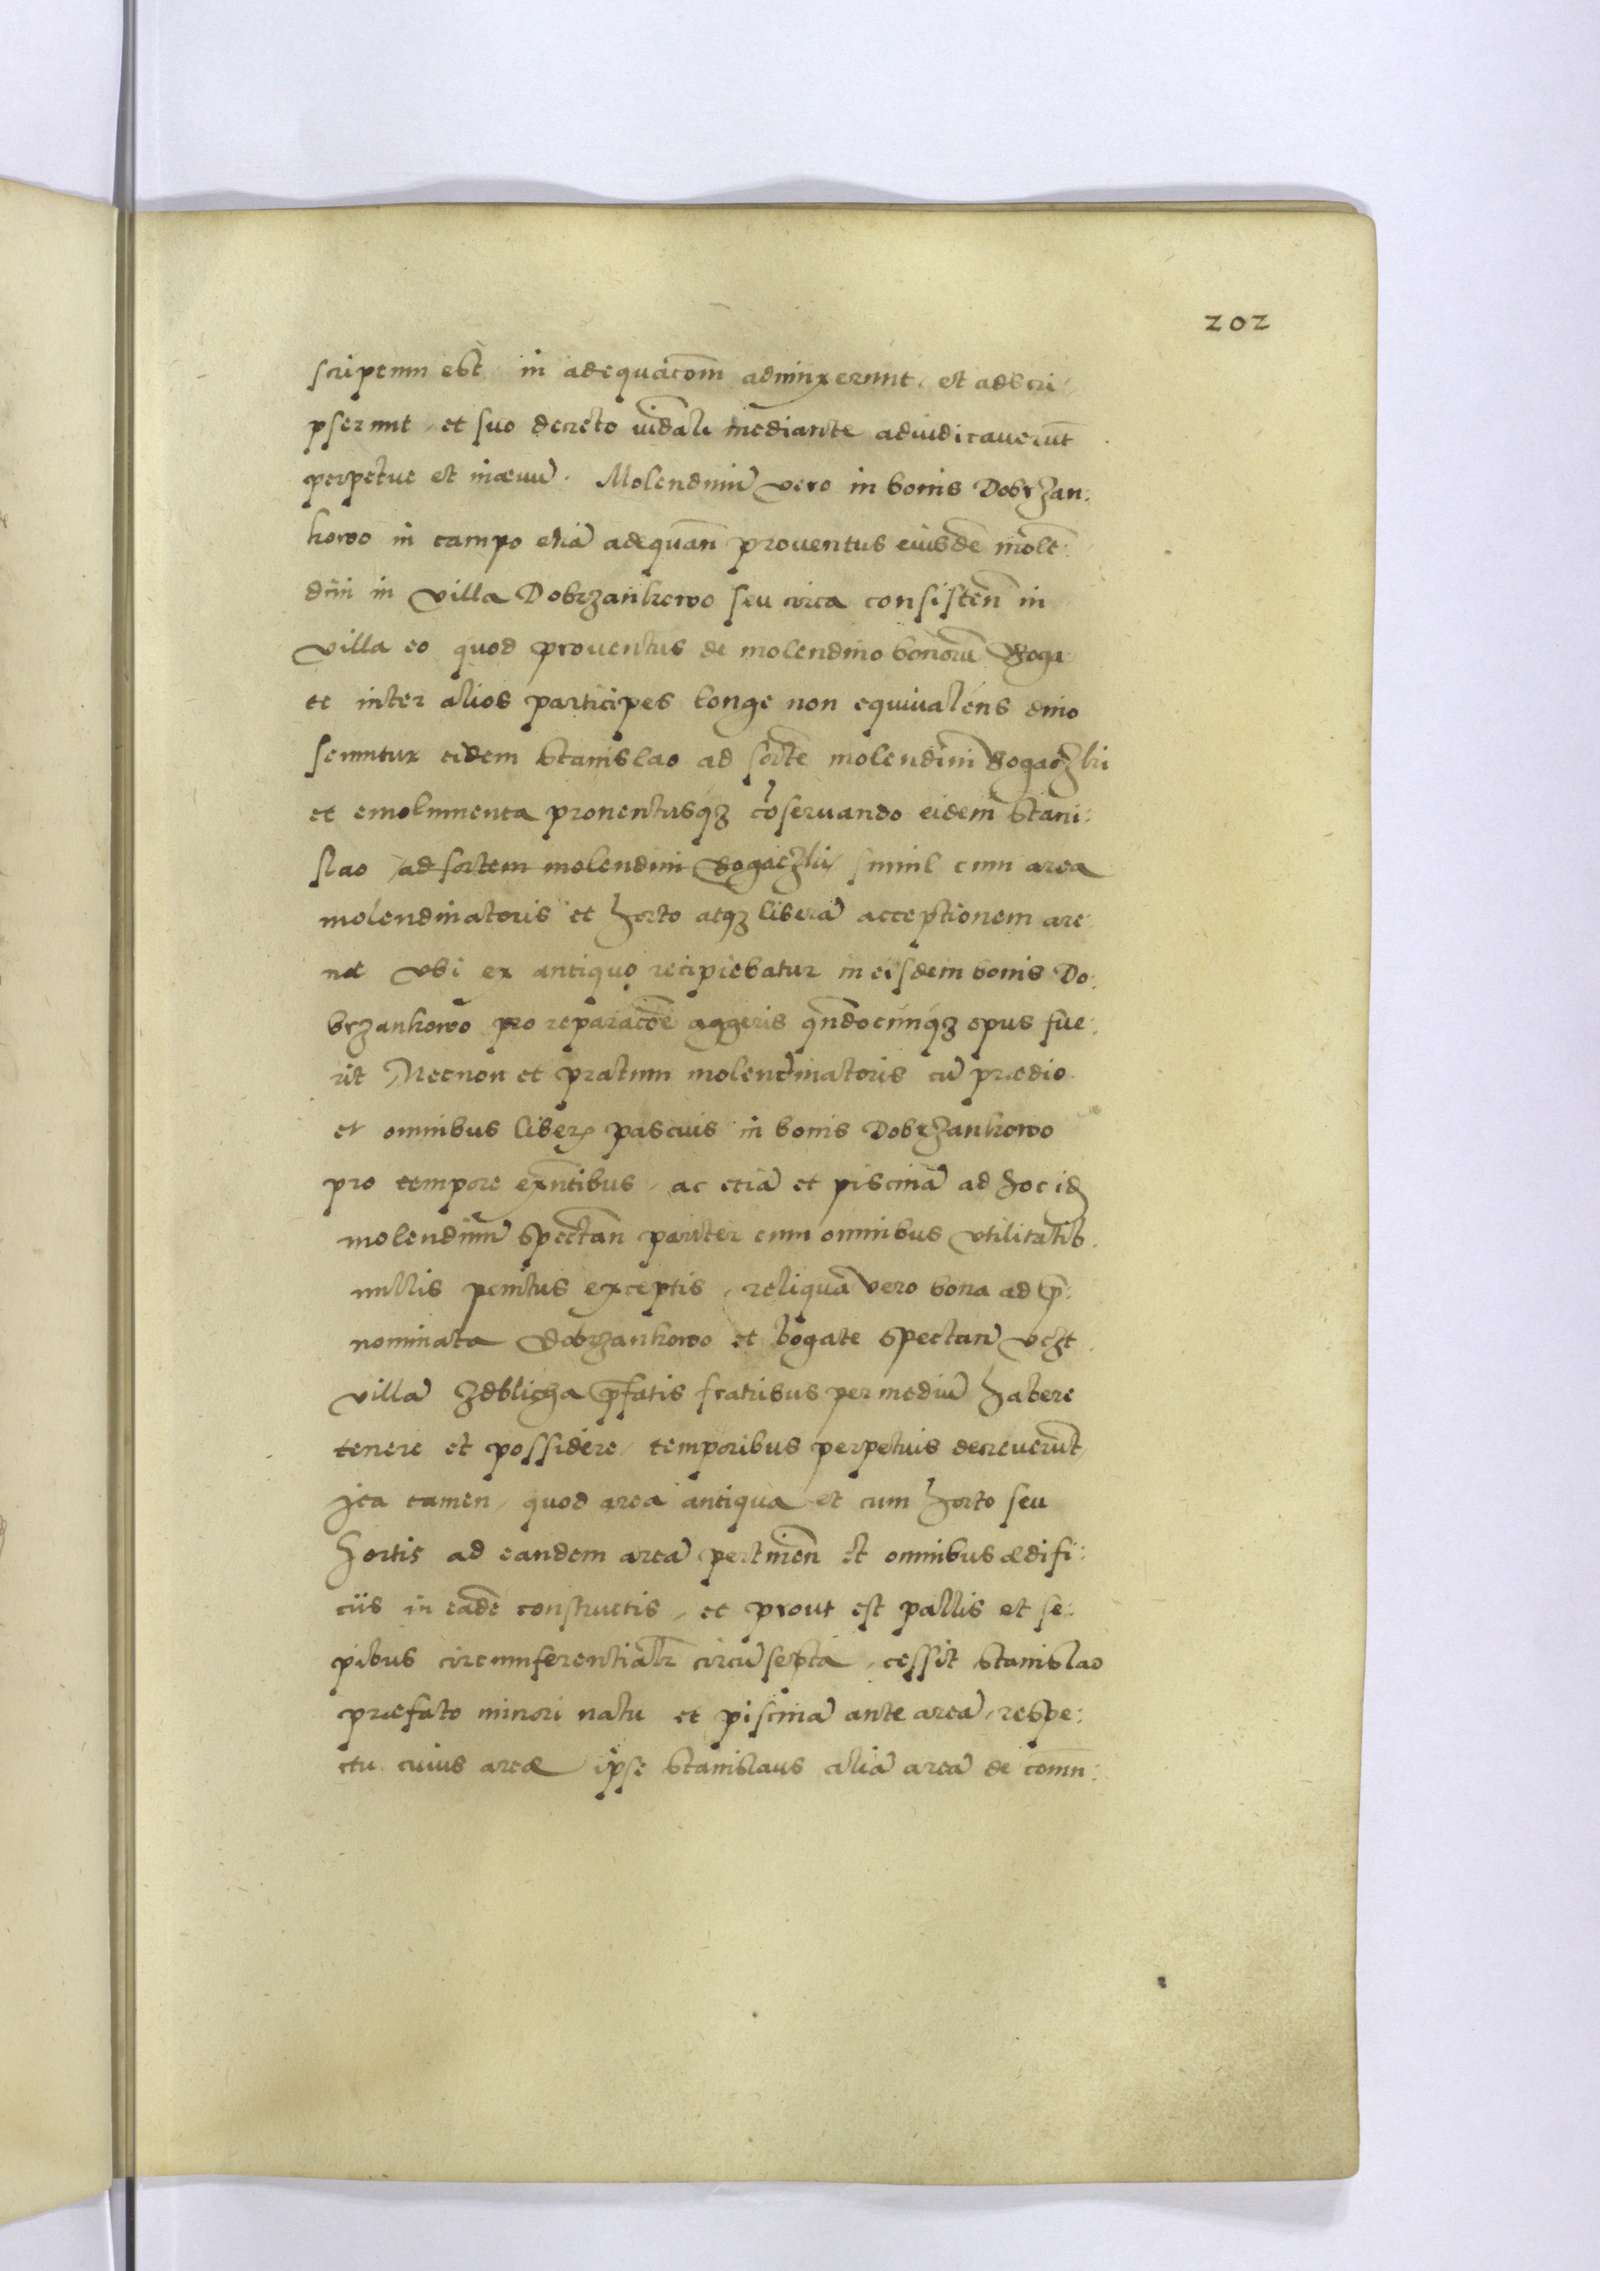 202
scriptum est in adequacõm adiunxerunt, et adscri
pserunt, et suo decreto iudiali mediante adiudicauerũt
perpetue et inæuũ. Molendinũ vero in bonis Dobrzan:
kowo in campo etiã adequãn prouentus eiusdẽ molẽ:
dini in villa Dobrzankowo seu circa consistẽn in
villa eo quod prouentus de molendino bonorũ Boga
te inter alios participes longe non equiualens dino
scuntur eidem Stanislao ad sortẽ molendini Bogaczki
et emolumenta prouentusq3 cõseruando eidem Stani:
slao ad sortem molendini Bogaczki simul cum area
molendinatoris et horto atq3 liberã acceptionem are
næ vbi ex antiquo recipiebatur in eisdem bonis Do:
brzankowo pro reparacõe aggeris qñdocunq3 opus fue:
rit Necnon et pratum molendinatoris cũ prædio
et omnibus liber. pascuis in bonis Dobrzankowo
pro tempore exñtibus, ac etiã et piscinã ad hoc id
molendinũ spectãn pariter cum omnibus vtilitatib.
nullis penitus exceptis, reliqua vero bona ad p̃:
nominata Dobrzankowo et bogate spectan vczt
villã Zdblicha p̃fatis fratribus per mediũ habere
tenere et possidere temporibus perpetuis decreuerũt
Ita tamen, quod area antiqua et cum horto seu
hortis ad eandem areã pertinẽn et omnibus ædifi:
ciis in eadẽ constructis, et prout est pallis et se:
pibus circumferentialr̃ circũsepta, cessit Stanislao
præfato minori natu et piscinã ante areã, respe:
ctu cuius areæ ipse Stanislaus aliã areã de comn: